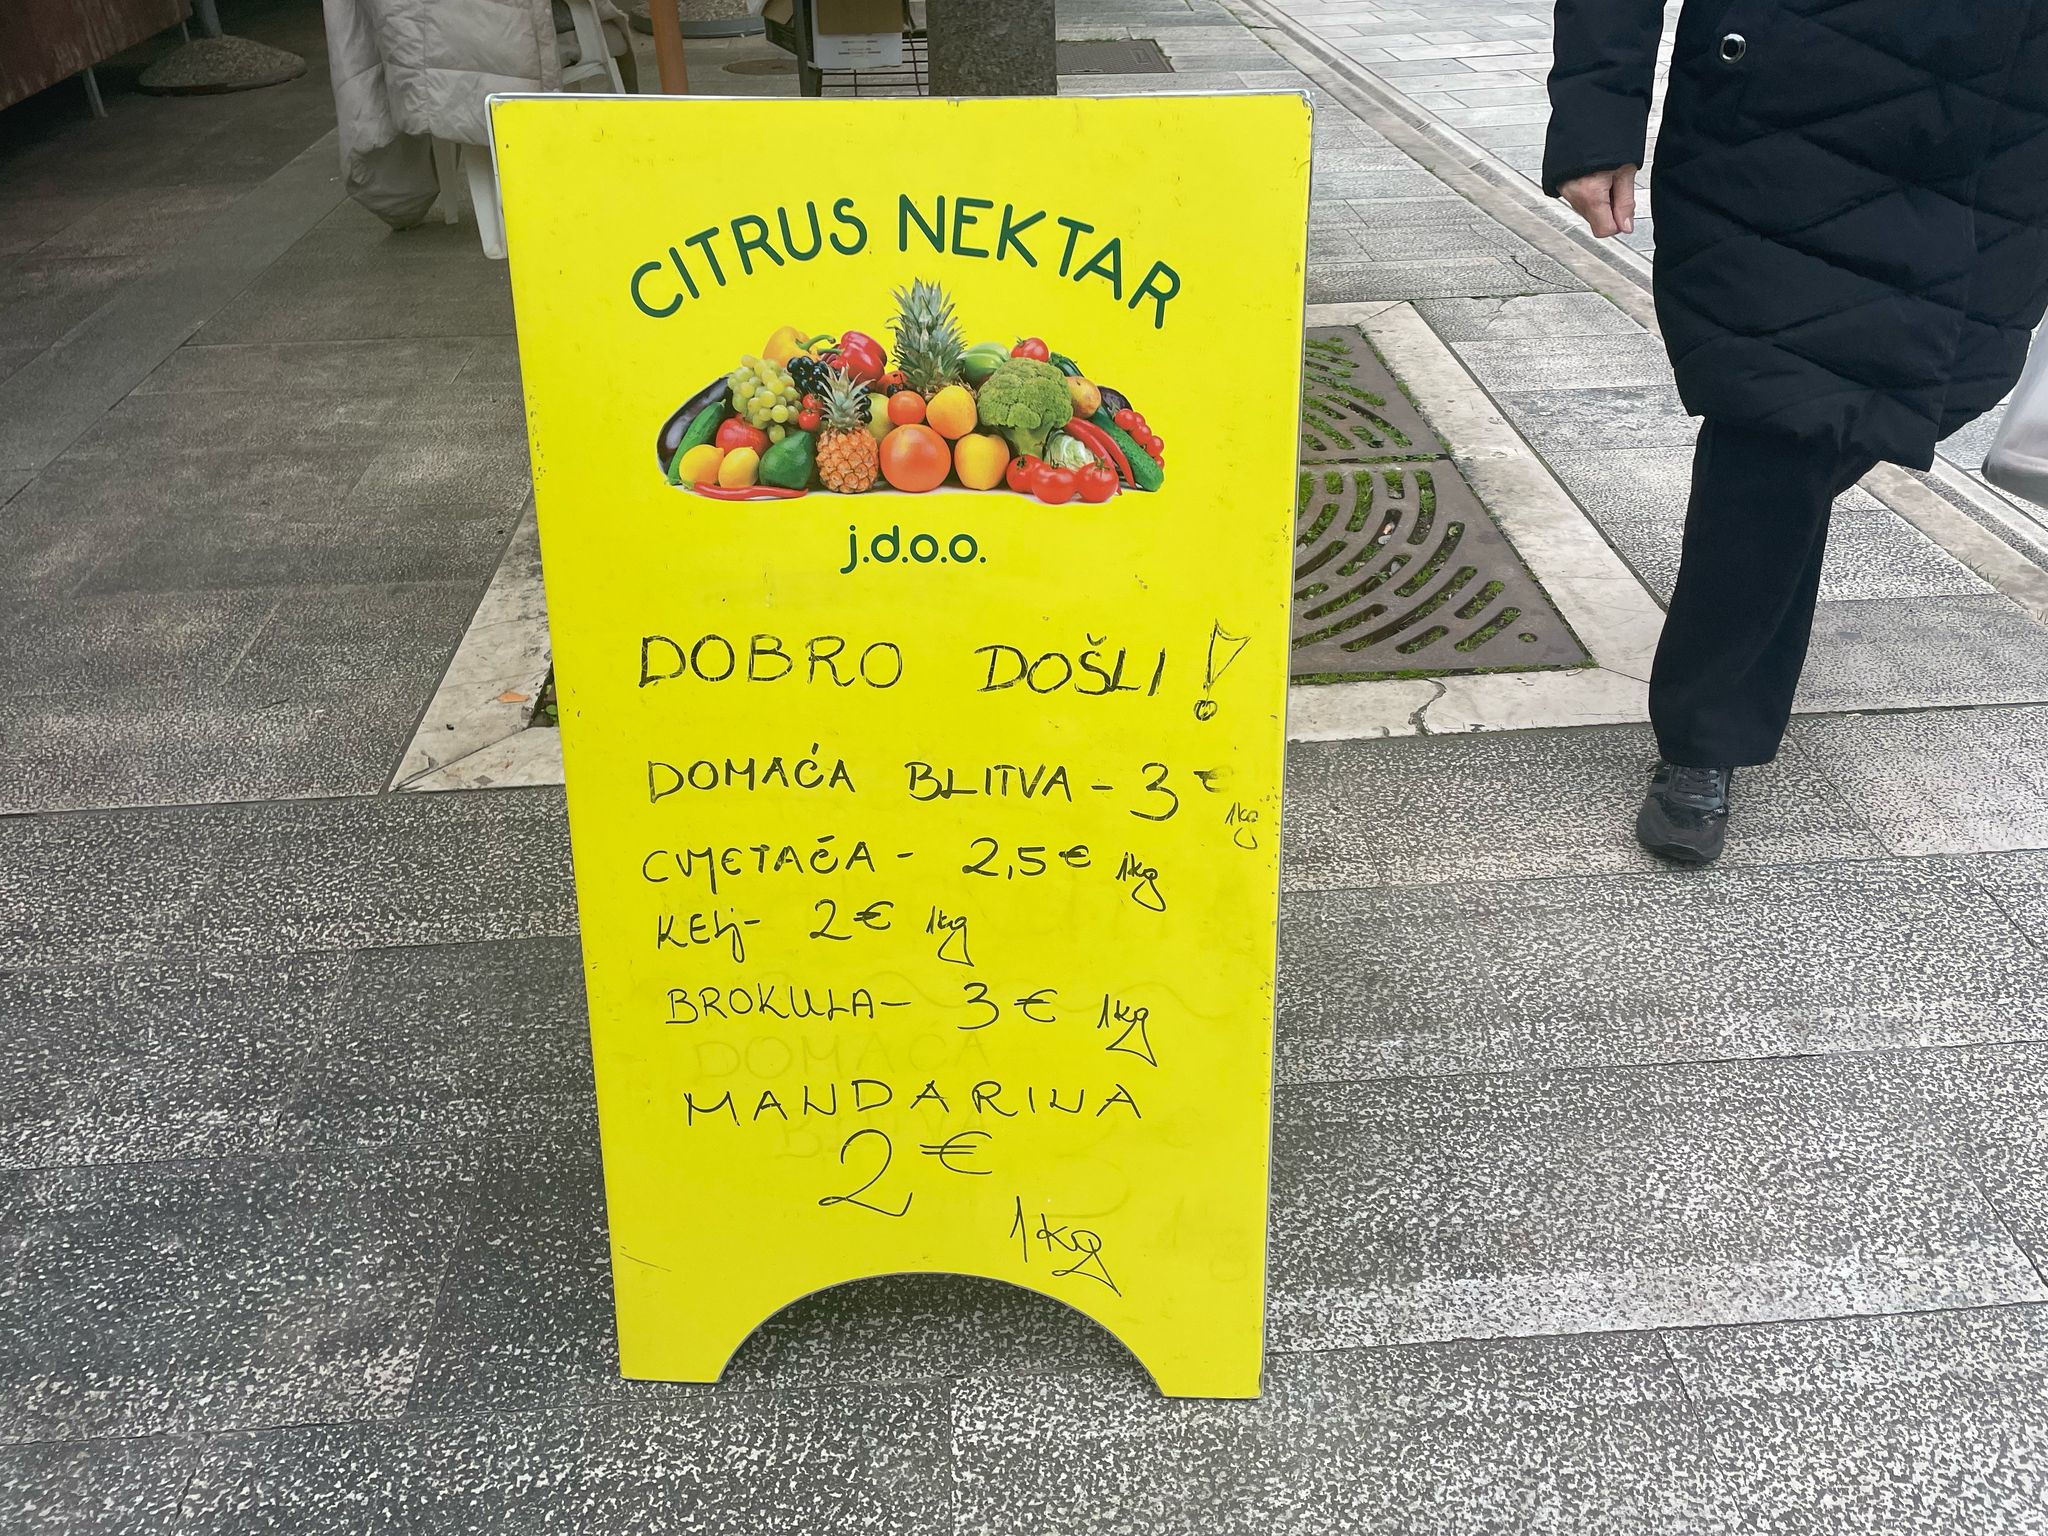 CITRUS NEKTAR
j.d.o.o.
DOBRO DOŠLI!
DOMAĆA BLITVA - 3 €
1kg
CVJETAĆA - 2,5 € 1kg
KELj - 2 € 1kg
BROKULA - 3 € 1kg
DOMAĆA
MANDARINA
BLITVA
2 €
1kg